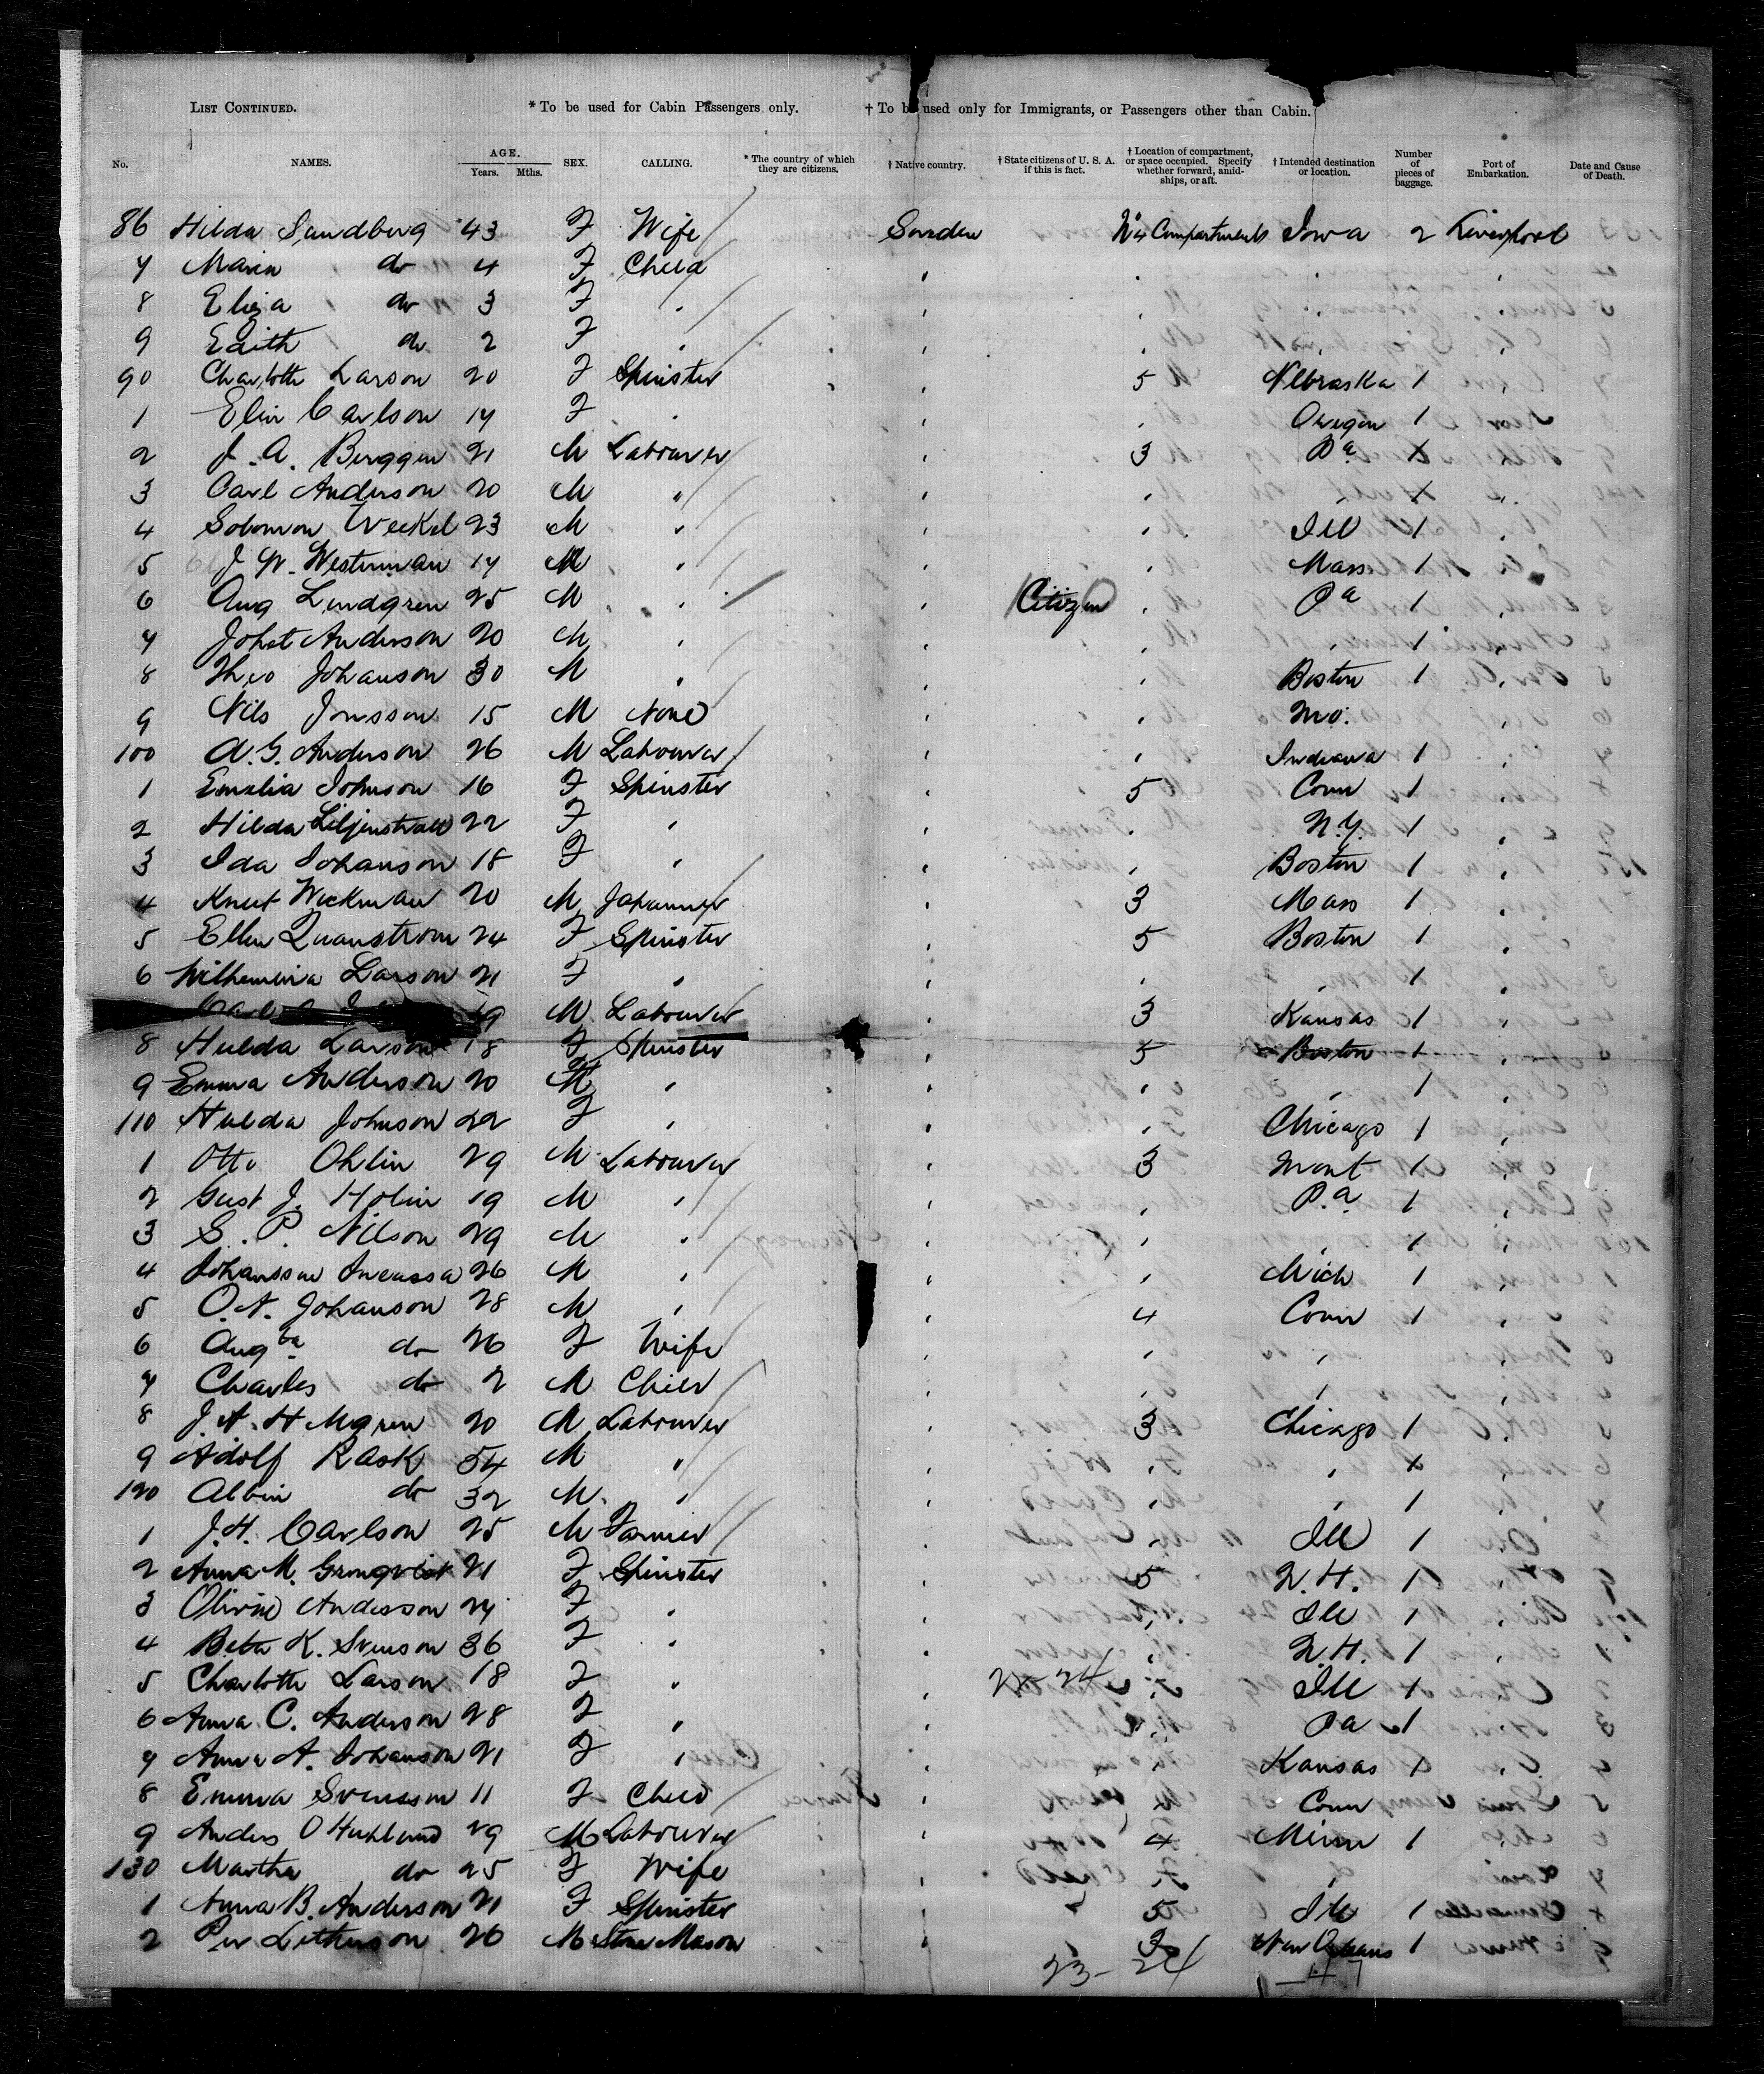 LIST CONTINUED. * To be used for Cabin Passengers only. † To be used only for Immigrants, or Passengers other than Cabin.
No. NAMES. AGE. Years. Mths. SEX. CALLING. * The country of which they are citizens. † Native country. † State citizens of U. S. A. if this is fact. † Location of compartment, or space occupied. Specify whether forward, amidships, or aft. † Intended destination or location. Number of pieces of baggage. Port of Embarkation. Date and Cause of Death.
86 Hilda Sandberg 43 F Wife Sweden No 4 Compartment Iowa 2 Liverpool
7 Maria do 4 F Child " " " "
8 Eliza do 3 F " " " " "
9 Edith do 2 F " " " " "
90 Charlotte Larson 20 F Spinster " 5 Nebraska 1 "
1 Elin Carlson 17 F " " " Oregon 1 "
2 J. A. Berggen 21 M Labourer " 3 Pa X "
3 Carl Anderson 20 M " " " " X "
4 Solomon 23 M " " " Ill 1 "
5 J. W. Westerman 17 M " " " Mass 1 "
6 Aug Lindgren 25 M " " Citizen " Pa 1 "
7 Johst Anderson 20 M " " " " 1 "
8 Theo Johanson 30 M " " " Boston 1 "
9 Nils Jonsson 15 M None " " Mo. "
100 A. G. Anderson 26 M Labourer " " Indiana 1 "
1 Emelia Johnson 16 F Spinster " 5 Conn 1 "
2 Hilda 22 F " " " N.Y. 1 "
3 Ida Johanson 18 F " " " Boston 1 "
4 Knut Wickman 20 M " 3 Mass 1 "
5 Ellen Quanstrom 24 F Spinster " 5 Boston 1 "
6 Wilhemina Larson 21 F " " " " 1 "
Carl 19 M Labourer " 3 Kansas 1 "
8 Hulda Larson 18 F Spinster " 5 Boston 1 "
9 Emma Anderson 20 F " " " " 1 "
110 Hulda Johnson 22 F " " " Chicago 1 "
1 Otto Ohlin 29 M Labourer " 3 Mont 1 "
2 Gust J. Holin 19 M " " " P.a. 1 "
3 S. P. Nilson 29 M " " " " 1 "
4 Johansson 26 M " " " Mich 1 "
5 O. A. Johanson 28 M " " 4 Conn 1 "
6 Aug ta do 26 F Wife " " " "
7 Charles do 2 M Child " " " "
8 J. A. 20 M Labourer " 3 Chicago 1 "
9 Adolf Rask 54 M " " " " X "
120 Albin do 32 M " " " " 1 "
1 J. H. Carlson 25 M Farmer " " Ill 1 "
2 Anna M. Gronqvist 21 F Spinster " 5 N.H. 1 "
3 Olivia Andersson 27 F " " " Ill 1 "
4 Beta K. Svenson 36 F " " " N.H. 1 "
5 Charlotte Larson 18 F " " 24-24 " Ill 1 "
6 Anna C. Anderson 28 F " " " Pa 1 "
7 Anna A. Johanson 21 F " " " Kansas 1 "
8 Emma Svensson 11 F Child " " Conn "
9 Anders 29 M Labourer " 4 Minn 1 "
130 Martha do 25 F Wife " " " "
1 Anna B. Anderson 21 F Spinster " 5 Ill 1 "
2 26 M Stone Mason " 3 New Orleans 1 "
23-24